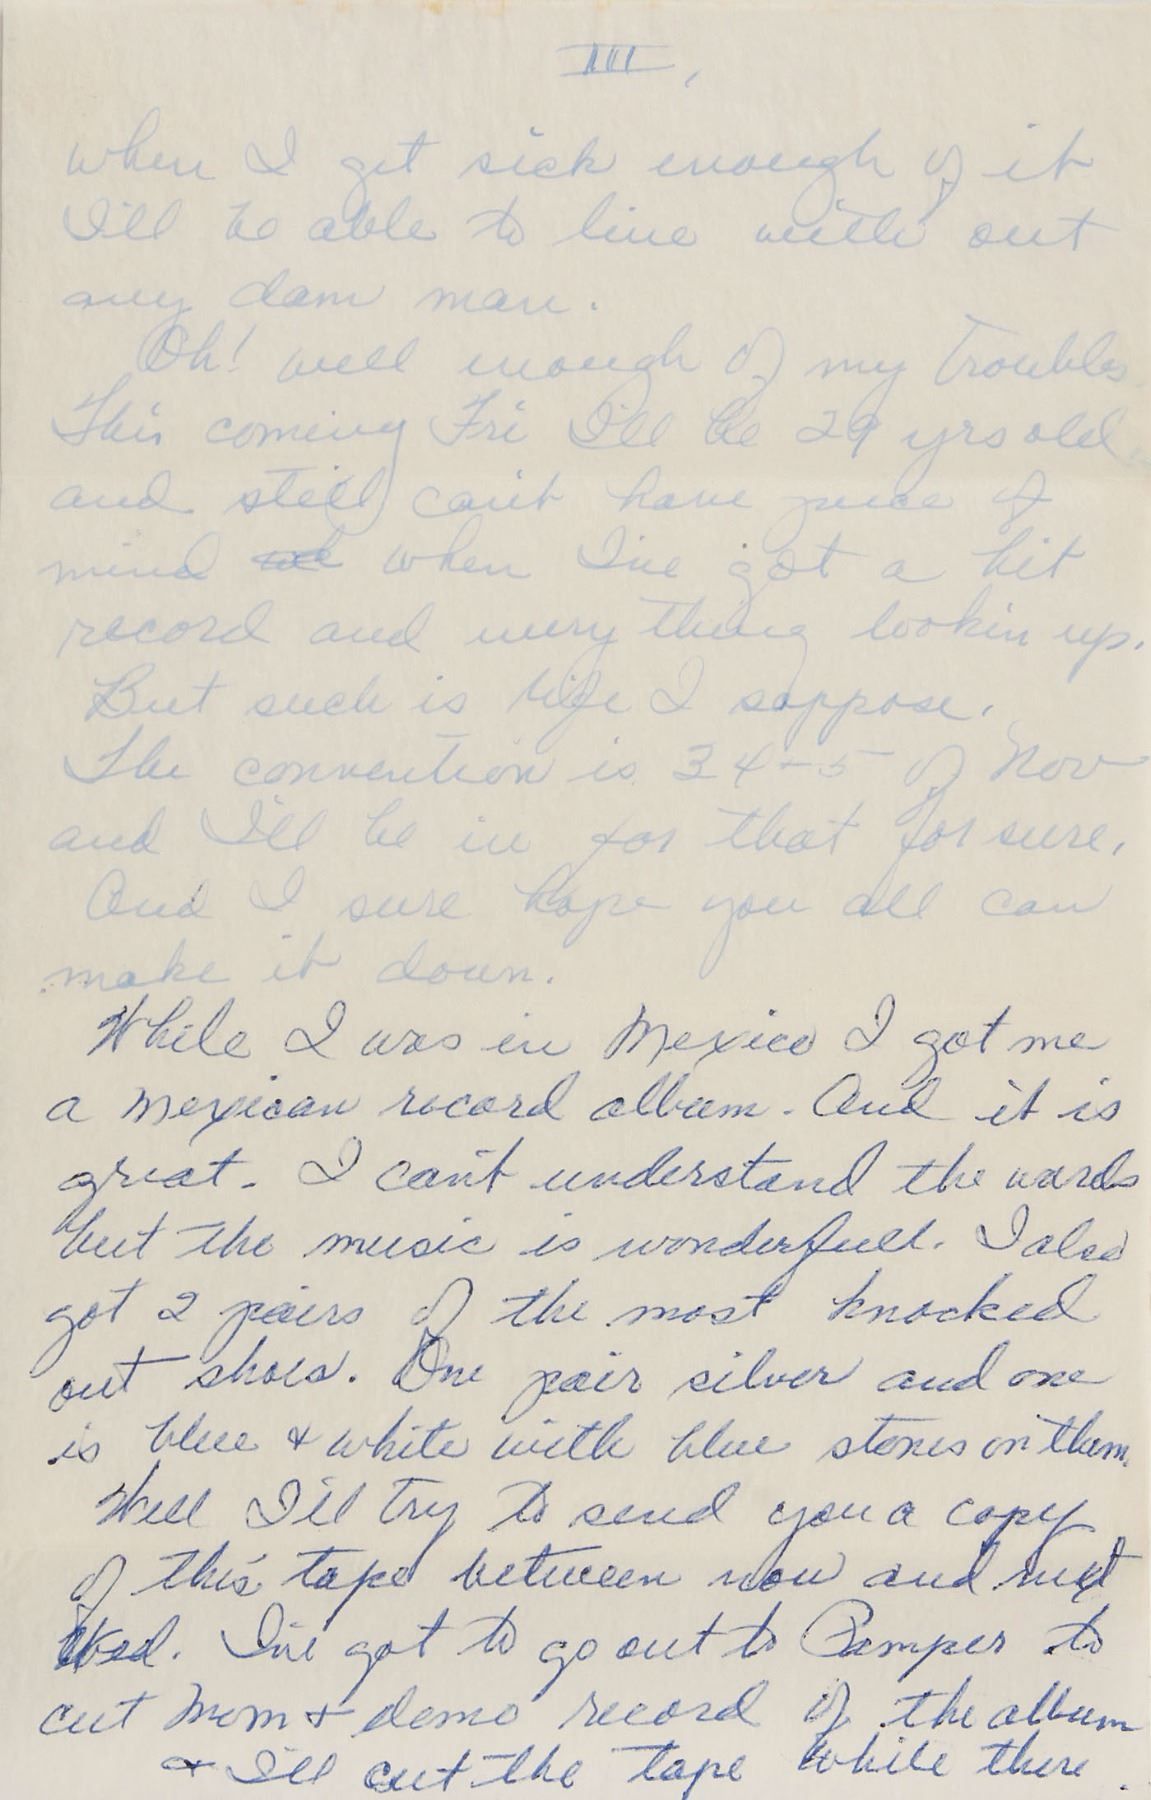 III,
when I get sick enough of it
I'll be able to live with out
any dam man.
Oh! well enough of my troubles
This coming Fri I'll be 29 yrs old
and still can't have peice of
mind when I've got a hit
record and every thing lookin up.
But such is life I soppose.
The convention is 3 4 - 5 of Nov
and I'll be in for that for sure.
And I sure hope you all can
make it down.
While I was in Mexico I got me
a mexican record album. And it is
great. I can't understand the words
but the music is wonderfull. I also
got 2 pairs of the most knocked
out shoes. One pair silver and one
is blue & white with blue stones on them.
Well I'll try to send you a copy
of this tape between now and next
Wed. I've got to go out to Pamper to
cut Mom a demo record of the album
& I'll cut the tape while there.